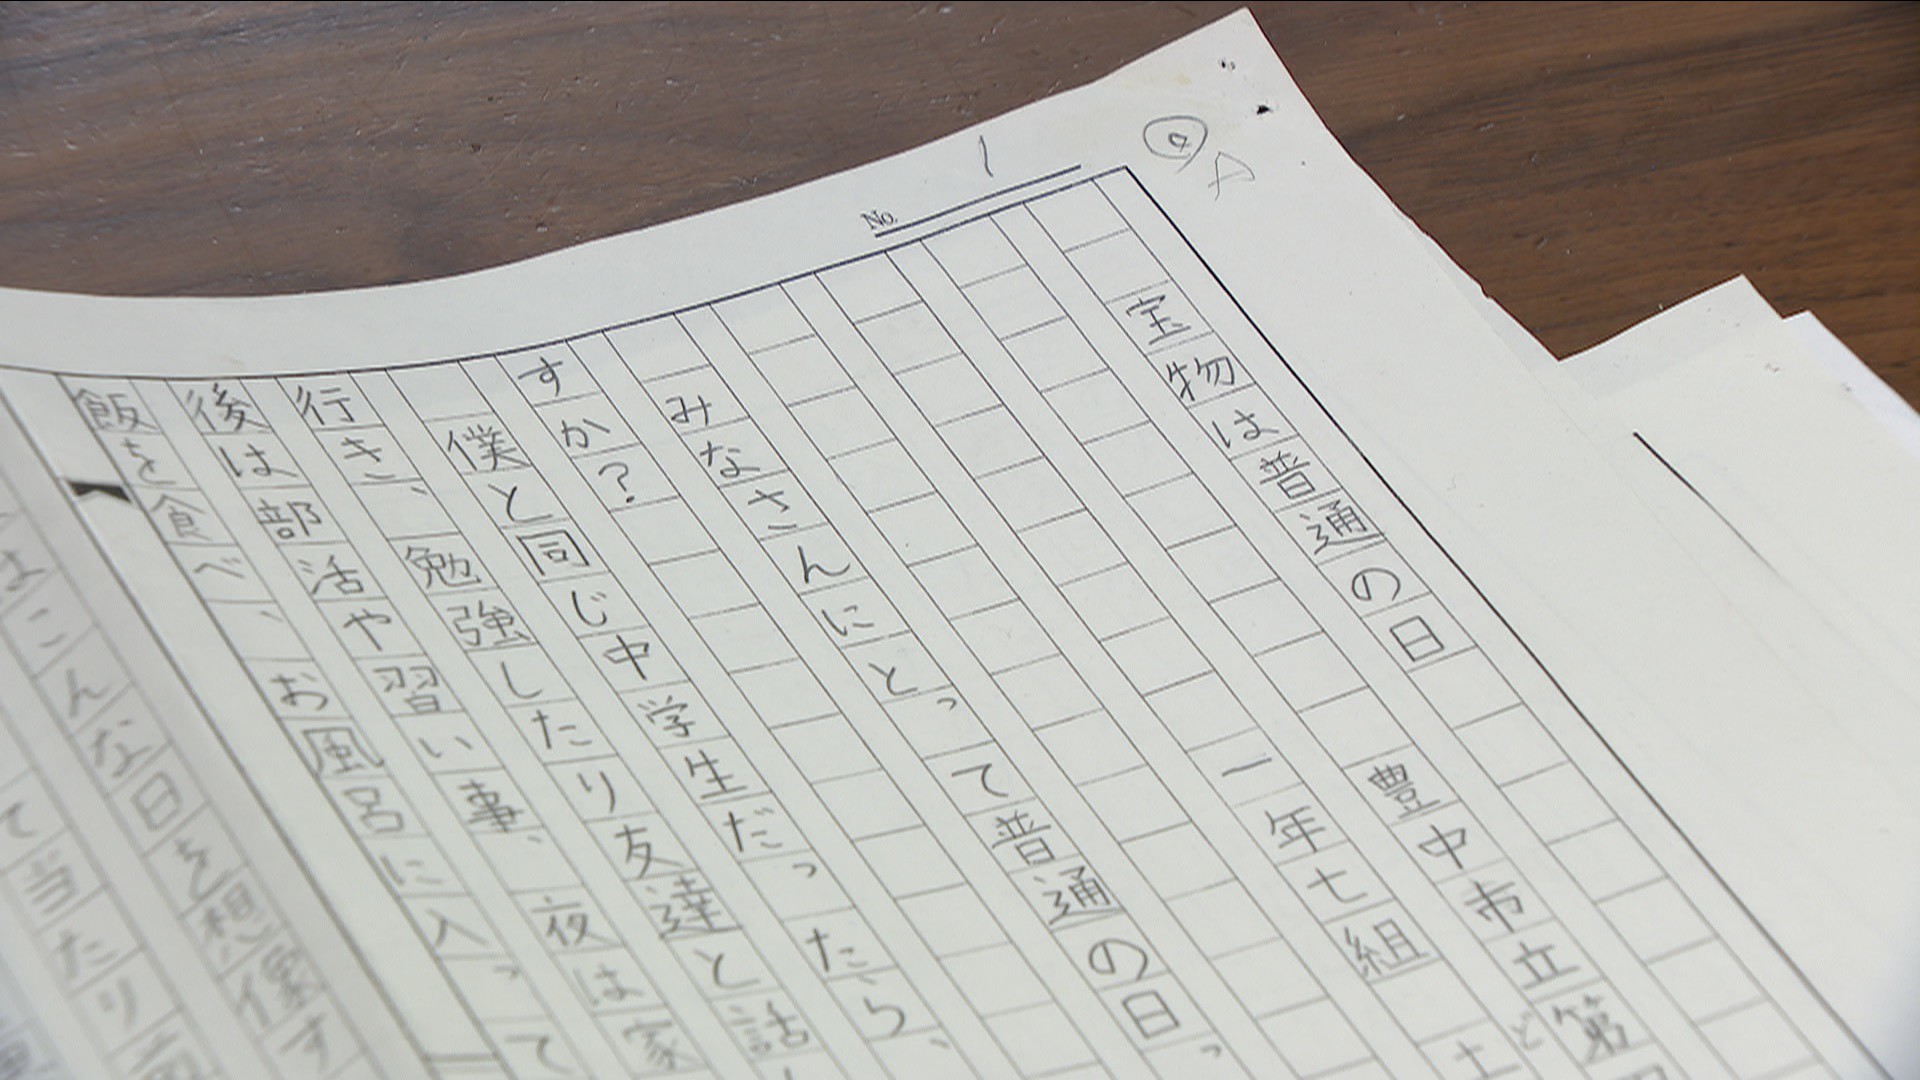 No. 1
A
宝物は普通の日
豊中市立第
一年七組
みなさんにとって普通の日っ
すか?
僕と同じ中学生だったら、
行き、勉強したり友達と話し
後は部活や習い事、夜は家
飯を食べ、お風呂に入って
はこんな日を想像す
て当たり前